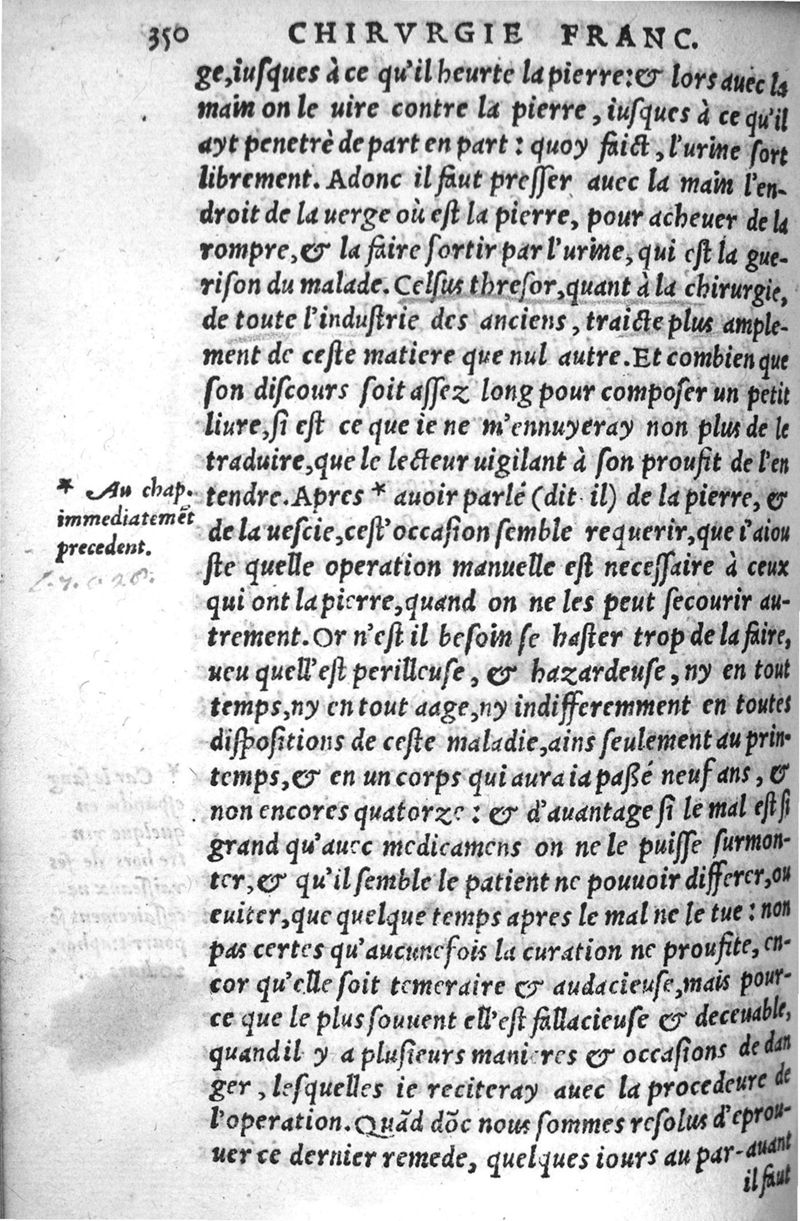 350 CHIRVRGIE FRANC.
ge,iusques à ce qu'il heurte la pierre:& lors auec la
main on le uire contre la pierre, iusques à ce qu'il
ayt penetrè de part en part: quoy faict, l'urine sort
librement. Adonc il faut presser auec la main l'en-
droit de la uerge où est la pierre, pour acheuer de la
rompre,& la faire sortir par l'urine, qui est la gue-
rison du malade. Celsus thresor,quant à la chirurgie,
de toute l'industrie des anciens, traicte plus ample-
ment de ceste matiere que nul autre. Et combien que
son discours soit assez long pour composer un petit
liure,si est ce que ie ne m'ennuyeray non plus de le
traduire,que le lecteur uigilant à son proufit de l'en
tendre. Apres * auoir parlé (dit il) de la pierre, &
de la uescie,cest'occasion semble requerir,que i'aiou
ste quelle operation manuelle est necessaire à ceux
qui ont la pierre,quand on ne les peut secourir au-
trement. Or n'est il besoin se haster trop de la faire,
ueu quell'est perilleuse, & hazardeuse, ny en tout
temps,ny en tout aage,ny indifferemment en toutes
dispositions de ceste maladie,ains seulement au prin-
temps,& en un corps qui aura ia passé neuf ans, &
non encores quatorze: & d'auantage si le mal est si
grand qu'auec medicamens on ne le puisse surmon-
ter,& qu'il semble le patient ne pouuoir differer,ou
euiter,que quelque temps apres le mal ne le tue: non
pas certes qu'aucunefois la curation ne proufite, en-
cor qu'elle soit temeraire & audacieuse,mais pour-
ce que le plus souuent ell'est fallacieuse & deceuable,
quand il y a plusieurs manieres & occasions de dan
ger, lesquelles ie reciteray auec la procedeure de
l'operation. Quãd dõc nous sommes resolus d'eprou-
uer ce dernier remede, quelques iours au par-auant
il faut
* Au chap.
immediatemẽt
precedent.